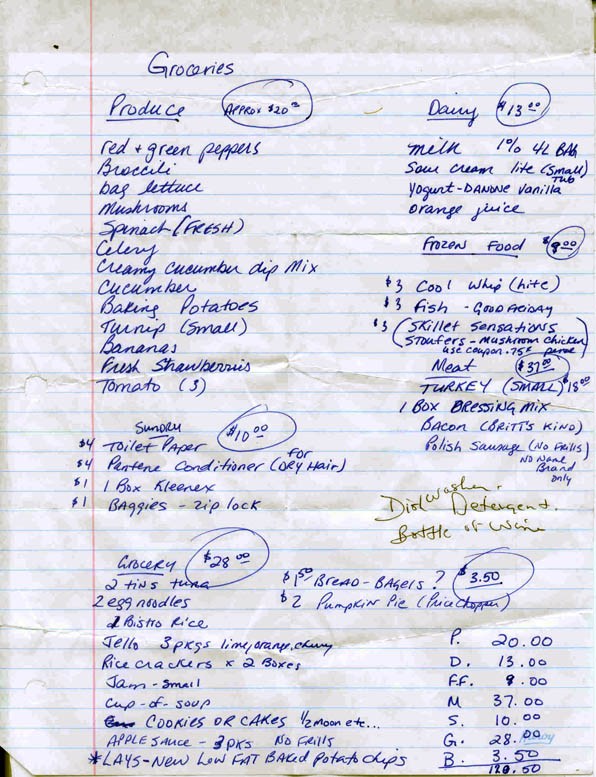 Groceries
Produce APPROX $20.00
red + green peppers
Broccili
bag lettuce
Mushrooms
Spinach (FRESH)
Celery
Creamy cucumber dip Mix
Cucumber
Baking Potatoes
Turnip (small)
Bananas
Fresh Strawberries
Tomato (3)
Sundry $10.00
$4 Toilet Paper
$4 Pantene Conditioner (for DRY Hair)
$1 1 Box Kleenex
$1 BAGGIES - zip lock
Grocery $28.00
2 tins tuna
2 egg noodles
1 Bistro Rice
Jello 3 pkgs lime, orange, cherry
Rice crackers x 2 Boxes
Jam - small
cup-of-soup
COOKIES OR CAKES 1/2 moon etc...
APPLE SAUCE - 3 PKS NO FRILLS
*LAYS - NEW LOW FAT BAKED Potato chips
Dairy $13.00
milk 1% 4L BAG
Sour cream lite (small) TUB
Yogurt - DANONE Vanilla
orange juice
FROZEN FOOD $9.00
$3 Cool Whip (lite)
$3 Fish - GOOD FRIDAY
$3 (SKILLET SENSATIONS
STOUFERS - MUSHROOM CHICKEN)
use coupon .75¢
Meat $37.00
TURKEY (SMALL) $18.00
1 BOX DRESSING MIX
Bacon (BRITT'S KIND)
Polish Sausage (NO FRILLS)
NO NAME
Brand
only
Dishwasher
Detergent.
Bottle of Wine
$1.50 BREAD - BAGELS ? $3.50
$2 Pumpkin Pie (Price Chopper)
P. 20.00
D. 13.00
FF. 9.00
M 37.00
S. 10.00
G. 28.00
B. 3.50
120.50